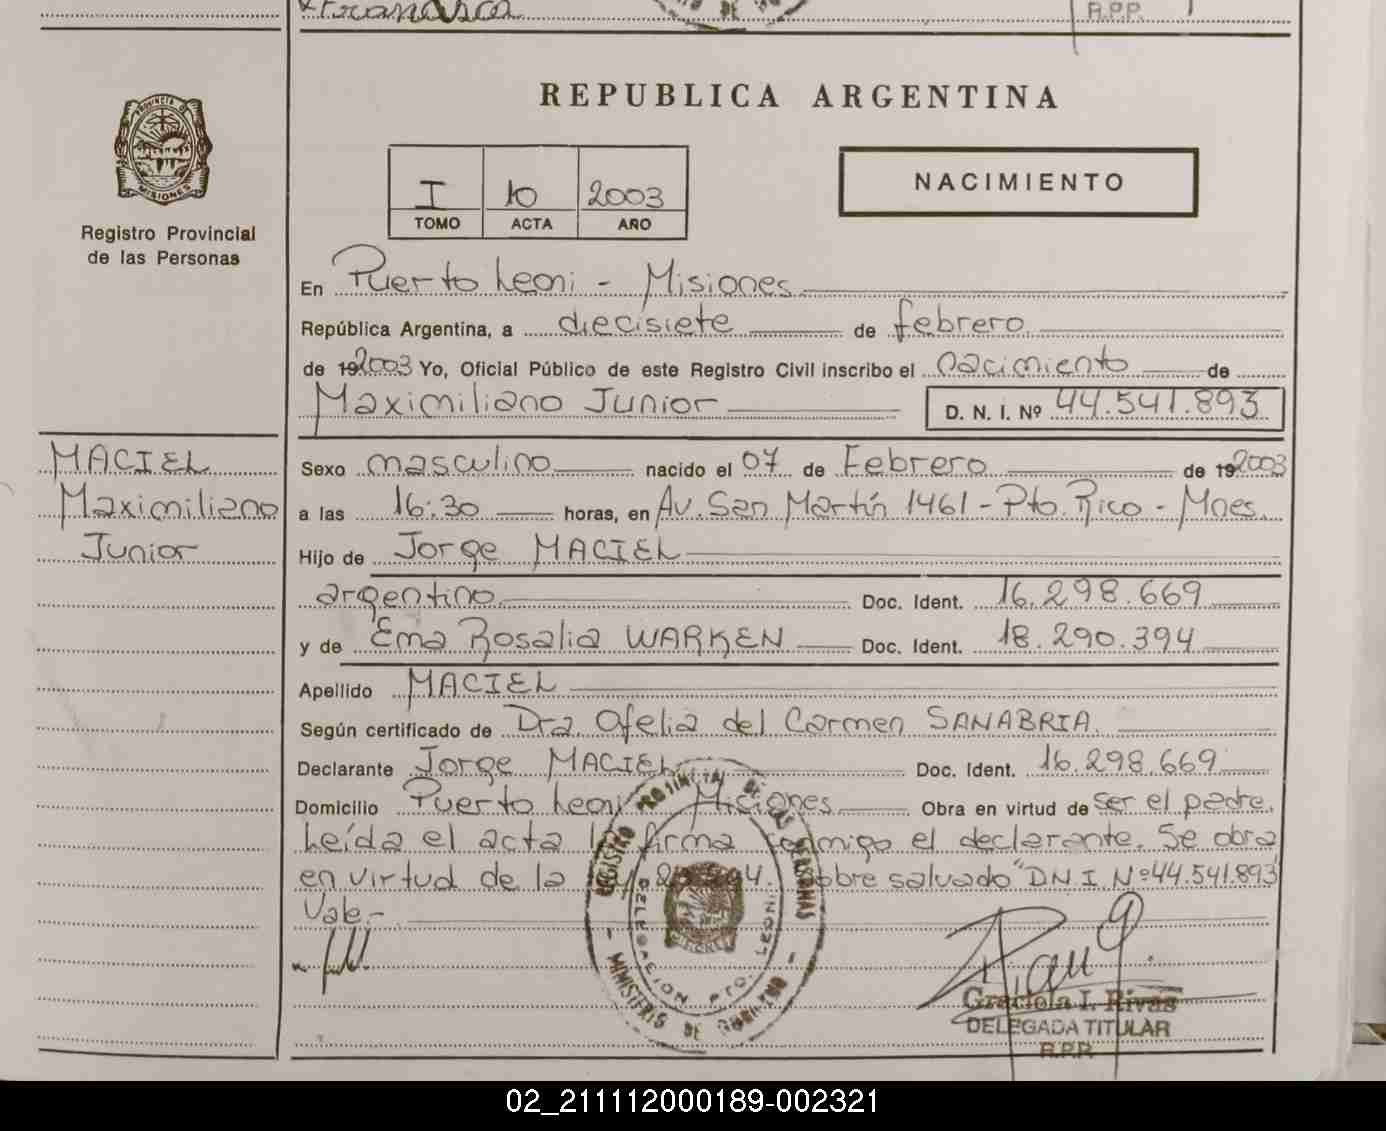 Francisca
R.P.P.
PROVINCIA DE
MISIONES
Registro Provincial
de las Personas
REPUBLICA ARGENTINA
I 10 2003
TOMO ACTA AÑO
NACIMIENTO
En Puerto Leoni - Misiones
República Argentina, a diecisiete de febrero
de 19 2003 Yo, Oficial Público de este Registro Civil inscribo el nacimiento de
Maximiliano Junior D. N. I. Nº 44.541.893
MACIEL
Maximiliano
Junior
Sexo masculino nacido el 07 de Febrero de 19 2003
a las 16:30 horas, en Av. San Martín 1461 - Pto. Rico - Mnes.
Hijo de Jorge MACIEL
argentino Doc. Ident. 16.298.669
y de Ema Rosalia WARKEN Doc. Ident. 18.290.394
Apellido MACIEL
Según certificado de Dra. Ofelia del Carmen SANABRIA.
Declarante Jorge MACIEL Doc. Ident. 16.298.669
Domicilio Puerto Leoni Misiones Obra en virtud de ser el padre.
Leída el acta la firma conmigo el declarante. Se obra
en virtud de la Sobre salvado "DNI. Nº 44.541.893
Vale.-
REGISTRO PROVINCIAL DE LAS PERSONAS
DELEGACION PTO. LEONI
- MINISTERIO DE GOBIERNO -
Graciela I. Rivas
DELEGADA TITULAR
R.P.P.
02_211112000189-002321